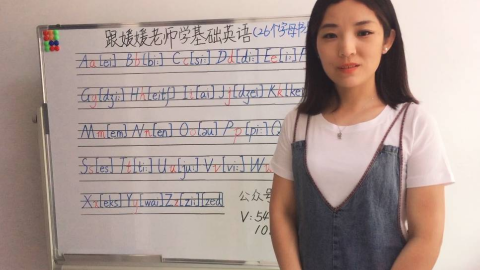 跟媛媛老师学基础英语(26个字母书
Aa[ei] Bb[bi:] Cc[si:] Dd[di:] Ee[i:] F
Gg[dʒi:] Hh[eitʃ] Ii[ai] Jj[dʒei] Kk[kei
Mm[em] Nn[en] Oo[əu] Pp[pi:] Q
Ss[es] Tt[ti:] Uu[ju:] Vv[vi:] W
Xx[eks] Yy[wai] Zz[zi:][zed]
公众号
V:54
10